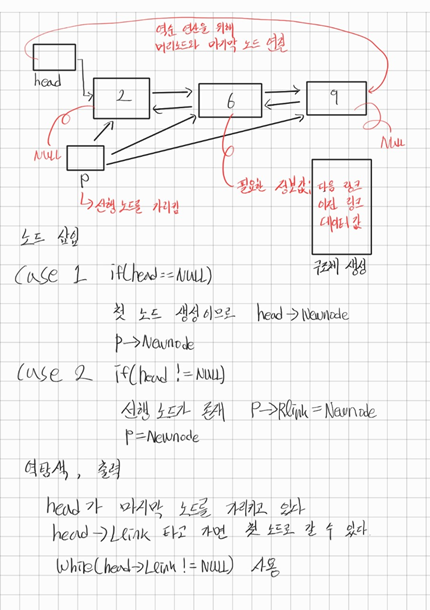 역순 연산을 위해
머리노드와 마지막 노드 연결
head
2
6
9
NULL
NULL
P
↳선행 노드를 가리킴
필요한 정보값;
다음 링크
이전 링크
데이터 값
구조체 생성
노드 삽입
Case 1 if(head==NULL)
첫 노드 생성이므로 head→Newnode
P→Newnode
Case 2 if(head != NULL)
선행 노드가 존재 P→Rlink=Newnode
P=Newnode
역탐색, 출력
head가 마지막 노드를 가리키고 있다
head→Llink 타고 가면 첫 노드로 갈 수 있다
While(head→Llink != NULL) 사용